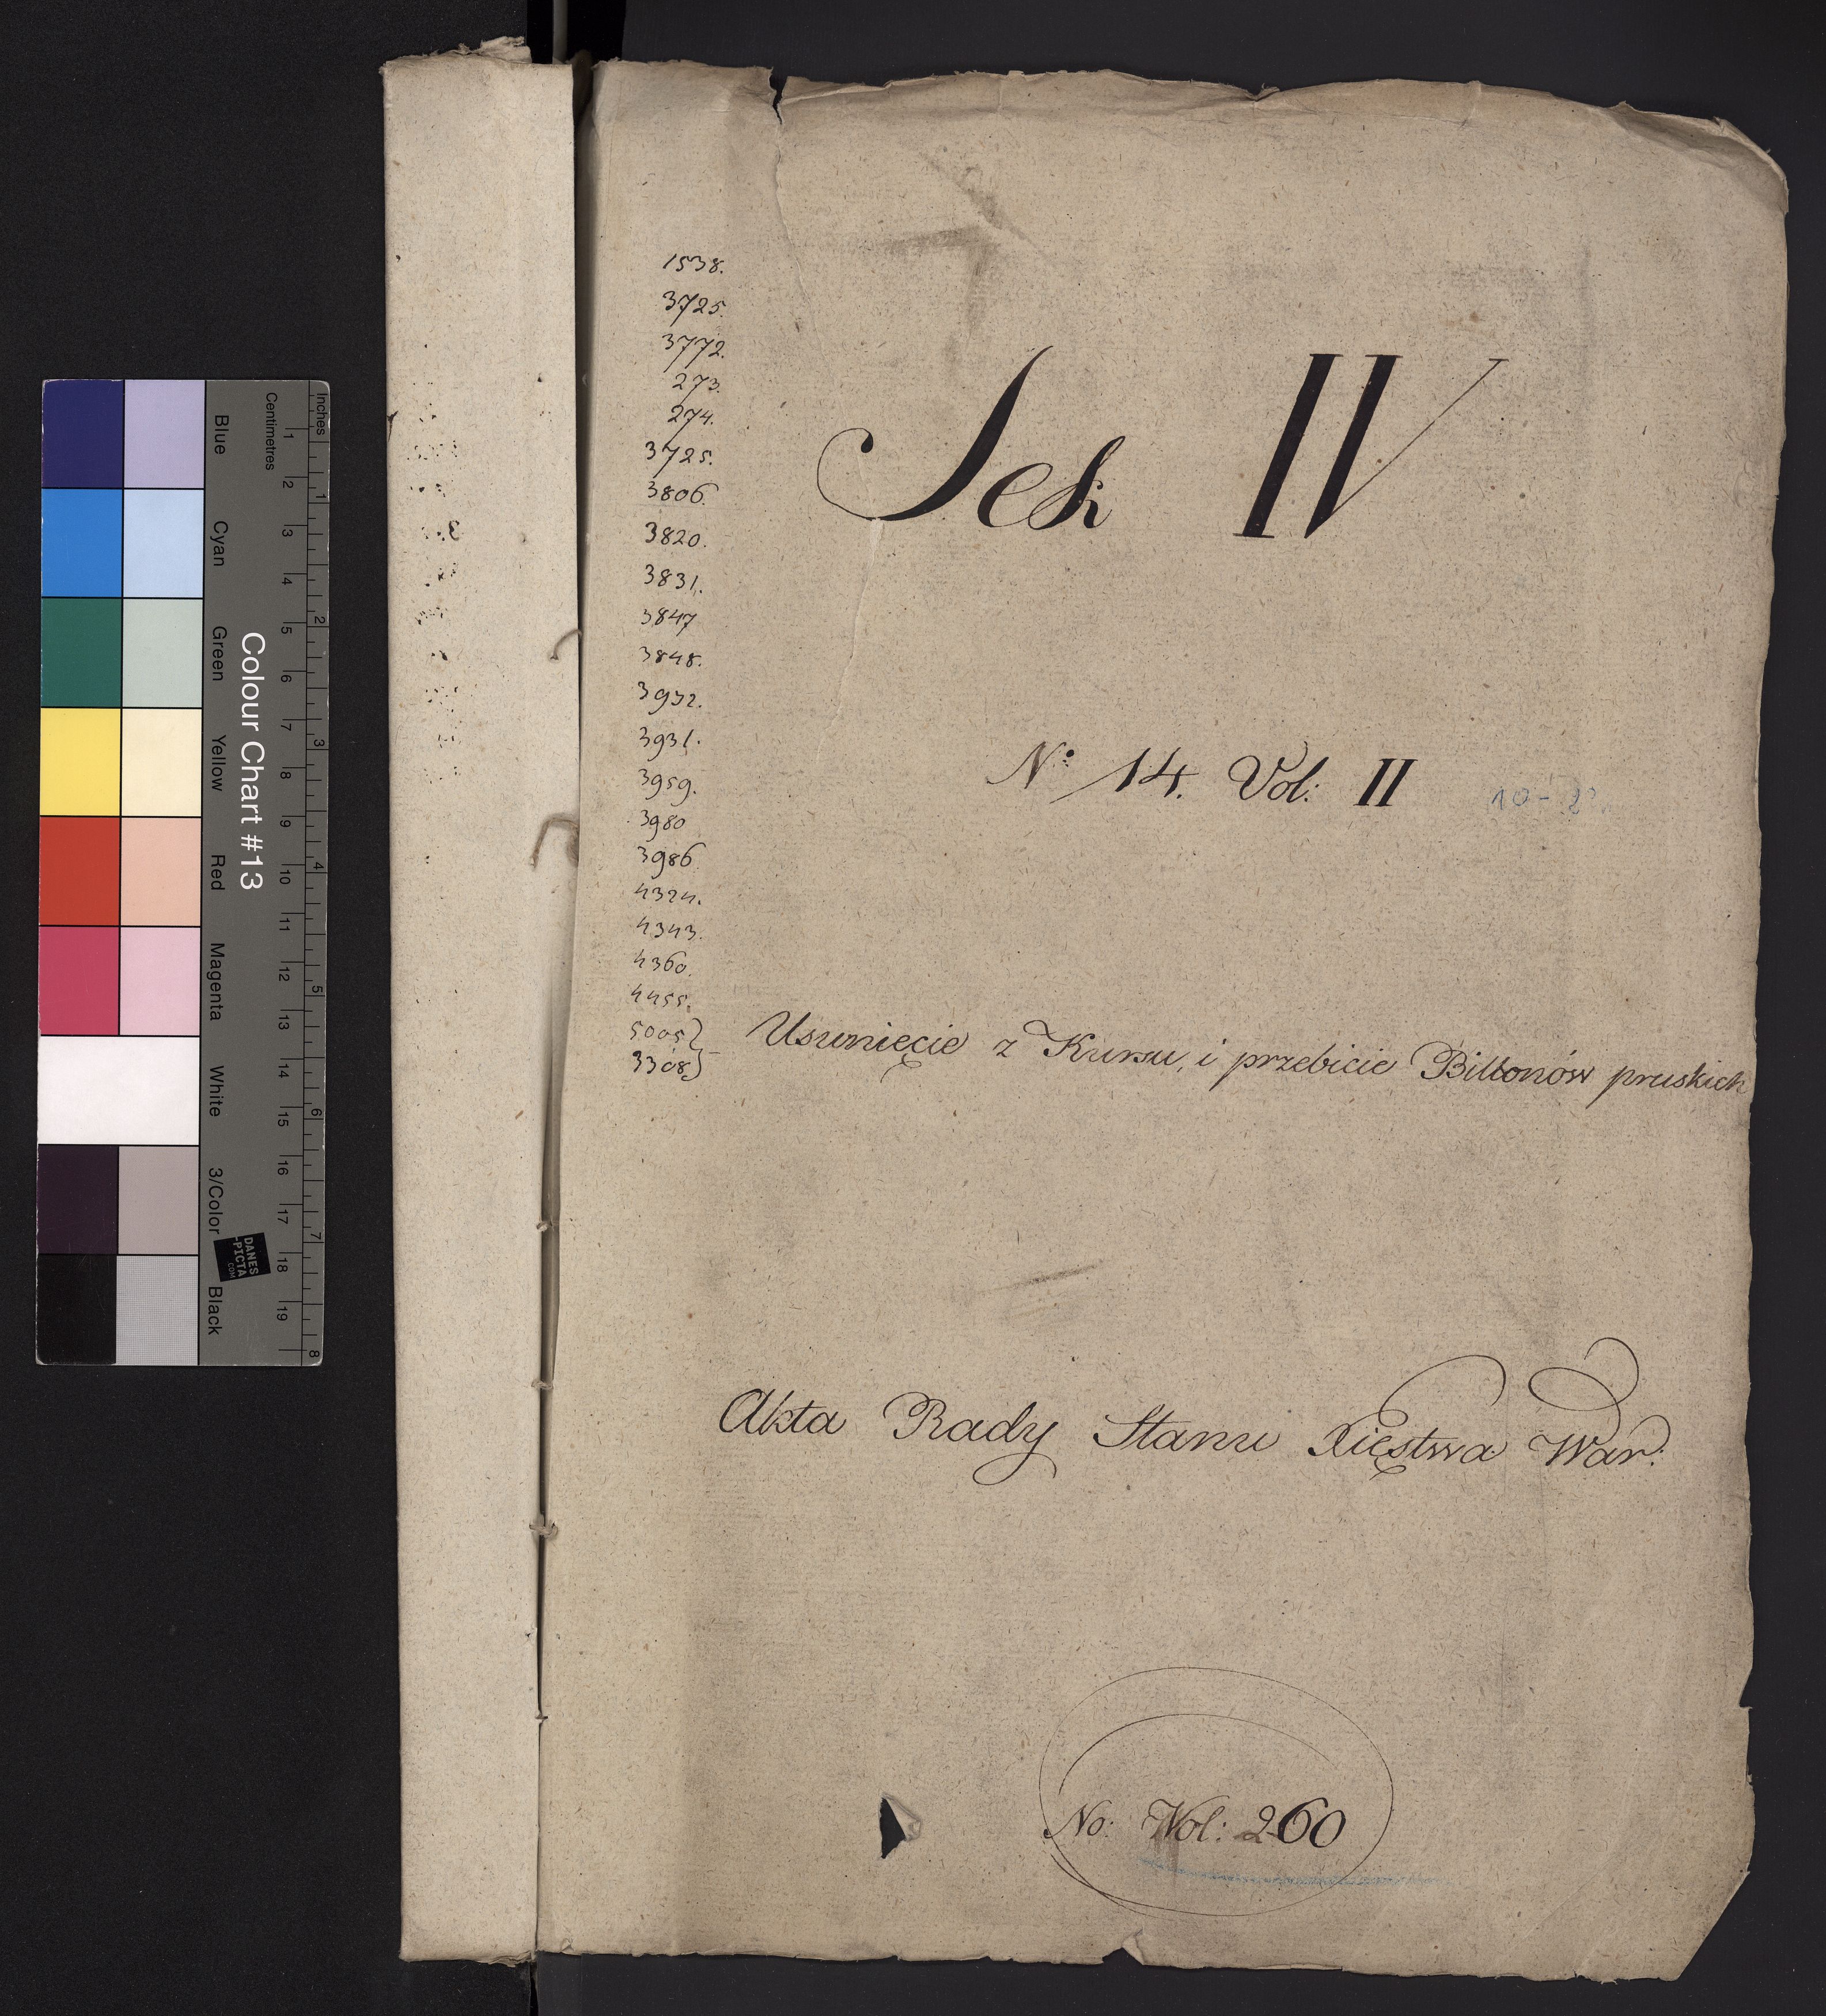 1538.
3725.
3772.
273.
274.
3725.
3806.
3820.
3831.
3847
3848.
3932.
3931.
3959.
3980
3986
4324.
4343.
4360.
4455.
5005}
3308}
Sek IV
No 14. Vol: II
Usunięcie z Kursu, i przebicie Billonów pruskich
Akta Rady Stanu Xięstwa War:
No: Vol: 260
Colour Chart #13
Blue Cyan Green Yellow Red Magenta White 3/Color Black
Centimetres 1 2 3 4 5 6 7 8 9 10 11 12 13 14 15 16 17 18 19
Inches 1 2 3 4 5 6 7 8
DANES
-PICTA
.COM